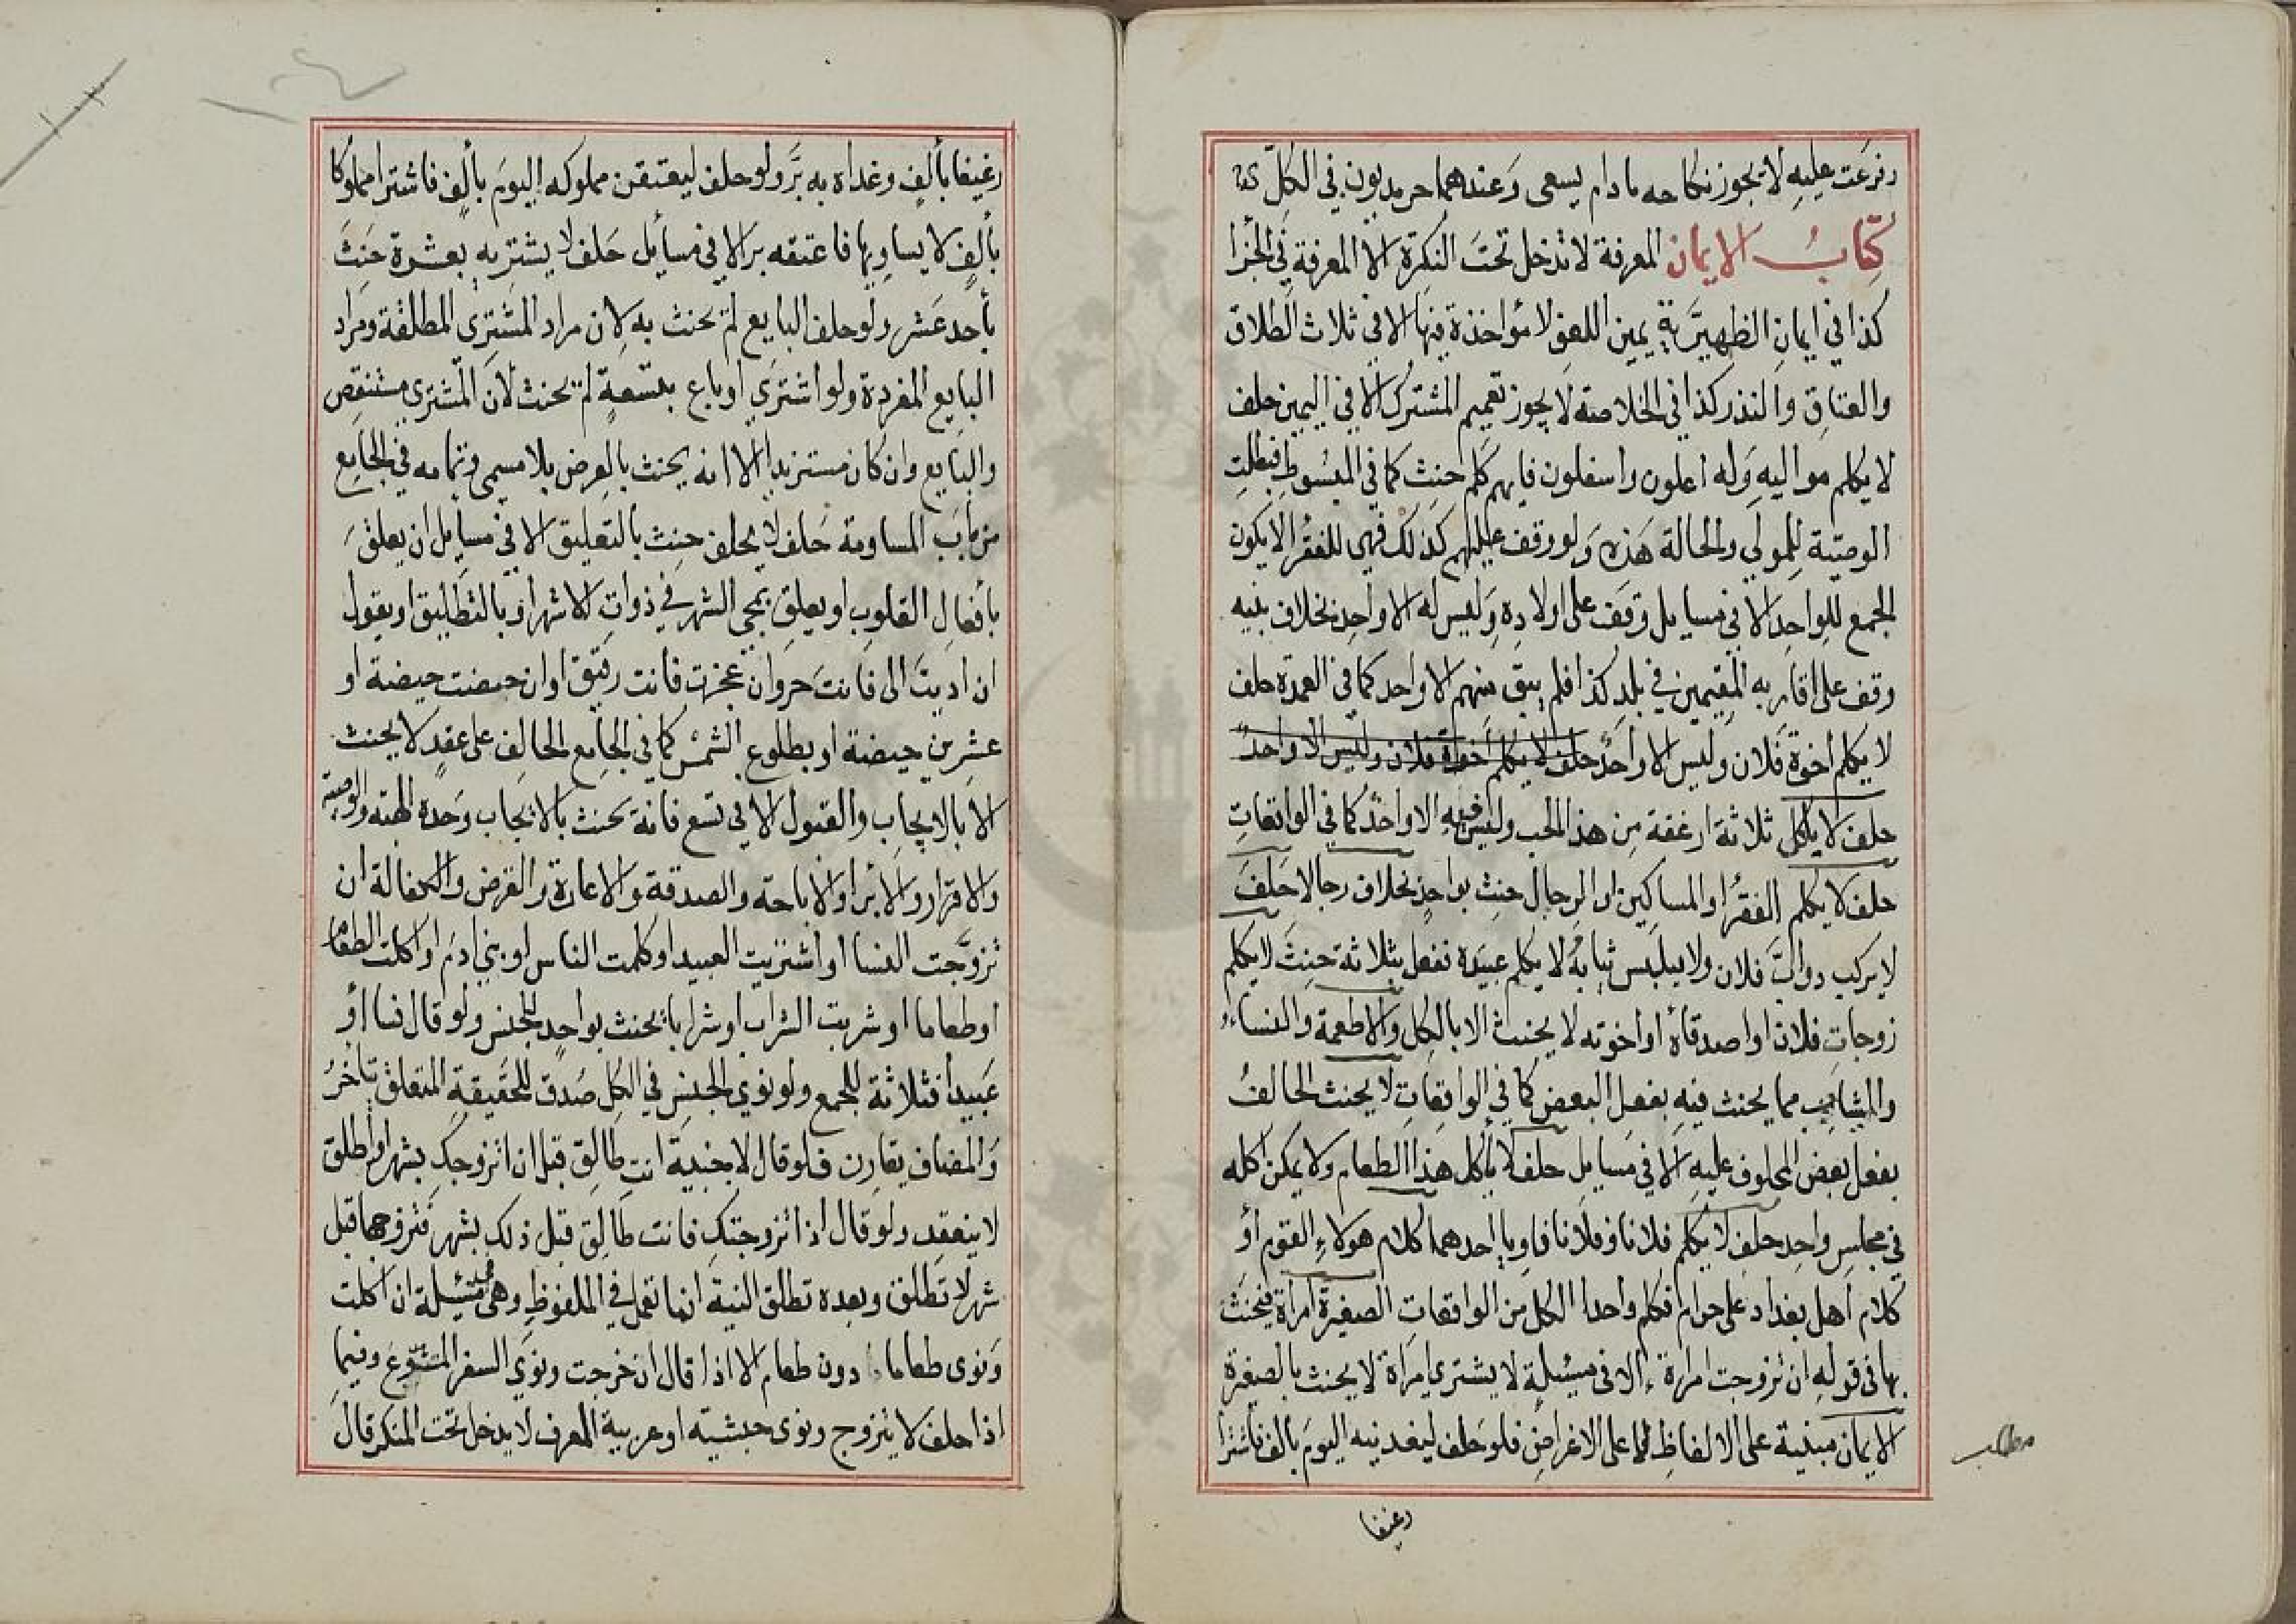 وفرعت عليه لا يجوز نكاحه مادام يسعى وعندهما حر مديون في الكل
كتاب الايمان المعرفة لا تدخل تحت النكرة الا المعرفة في الجزا
كذا في ايمان الظهيرية يمين اللغو لا مؤاخذة فيها الا في ثلاث الطلاق
والعتاق والنذر كذا في الخلاصة لا يجوز تعميم المشترك الا في اليمين حلف
لا يكلم مواليه وله اعلون واسفلون فايهم كلم حنث كما في المبسوط فبطلت
الوصية للموالي والحالة هذه ولو وقف عليهم كذلك فهي للفقرا لا يكون
الجمع للواحد الا في مسايل وقف على اولاده وليس له الا واحد بخلاف بنيه
وقف على اقاربه المقيمين في بلد كذا فلم يبق منهم الا واحد كما في العمدة حلف
لا يكلم أخوة فلان وليس الا واحد حلف لا يكلم اخوة فلان وليس الا واحد
حلف لا ياكل ثلاثة ارغفة من هذا الحب وليس فيه الا واحد كما في الواقعات
حلف لا يكلم الفقرا او المساكين او الرجال حنث بواحد بخلاف رجالا حلف
لا يركب دواب فلان ولا يلبس ثيابه لا يكلم عبيده ففعل بثلاثة حنث لا يكلم
زوجات فلان او اصدقاه او اخوته لا يحنث الا بالكل والاطعمة والنساء
والثياب مما يحنث فيه بفعل البعض كما في الواقعات لا يحنث الحالف
بفعل بعض المحلوف عليه الا في مسايل حلف لا يأكل هذا الطعام ولا يمكن اكله
في مجلس واحد حلف لا يكلم فلانا وفلانا ناويا احدهما كلام هولاء القوم أو
كلام اهل بغداد على حرام فكلم واحدا الكل من الواقعات الصغيرة امراة فيحنث
بها في قوله ان تزوجت امراة الا في مسئلة لا يشتري امراة لا يحنث بالصغيرة
الايمان مبنية على الالفاظ لا على الاغراض فلو حلف ليغدينه اليوم بالف فاشترا
مطلب
رغيفا
رغيفا بألف وغداه به بر ولو حلف ليعتقن مملوكه اليوم بألف فاشترا مملوكا
بألف لا يساويها فاعتقه بر الا في مسايل حلف لا يشتريه بعشرة حنث
بأحد عشر ولو حلف البايع لم يحنث به لان مراد المشتري المطلقة ومراد
البايع المفردة ولو اشتري او باع بتسعة لم يحنث لأن المشتري مستنقص
والبايع وان كان مستزيدا الا انه يحنث بالعرض بلا مسمى وتمامه في الجامع
من باب المساومة حلف لا يحلف حنث بالتعليق الا في مسايل ان يعلق
بأفعال القلوب او يعلق بمجي الشهر في ذوات الاشهر او بالتطليق او يقول
ان اديت الى فانت حر وان عجزت فانت رقيق او ان حضت حيضة او
عشرين حيضة او بطلوع الشمس كما في الجامع الحالف على عقد لا يحنث
الا بالايجاب والقبول الا في تسع فانه يحنث بالايجاب وحده الهبة والوصية
والاقرار والابرا والاباحة والصدقة والاعارة والقرض والكفالة ان
تزوجت النسا أو اشتريت العبيد او كلمت الناس او بني ادم او اكلت الطعام
او طعاما او شربت الشراب او شرابا يحنث بواحد للجنس ولو قال نسا او
عبيدا فثلاثة للجمع ولو نوي الجنس في الكل صدق للحقيقة المتعلق يتأخر
والمضاف يقارن فلو قال لاجنبية انت طالق قبل ان اتزوجك بشهر او اطلق
لا ينعقد ولو قال اذا تزوجتك فانت طالق قبل ذلك بشهر فتزوجها قبل
شهر لا تطلق وبعده تطلق النية انما تعمل في الملفوظ وهي مسئلة ان اكلت
ونوى طعاما دون طعام الا اذا قال ان خرجت ونوي السفر المتنوع وفيما
اذا حلف لا يتزوج ونوى حبشيه او عربية المعرف لا يدخل تحت المنكر قال